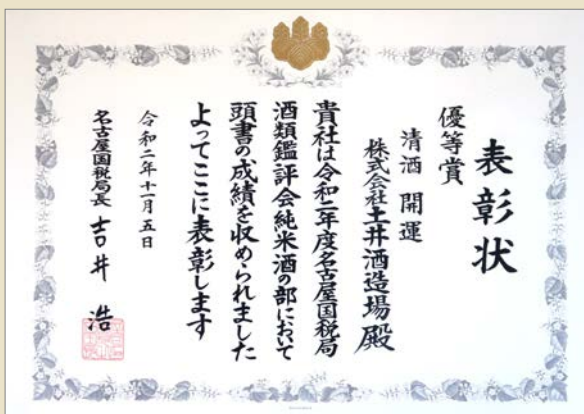 表彰状
優等賞
清酒 開運
株式会社土井酒造場殿
貴社は令和二年度名古屋国税局
酒類鑑評会純米酒の部において
頭書の成績を収められました
よってここに表彰します
令和二年十一月五日
名古屋国税局長 吉井 浩